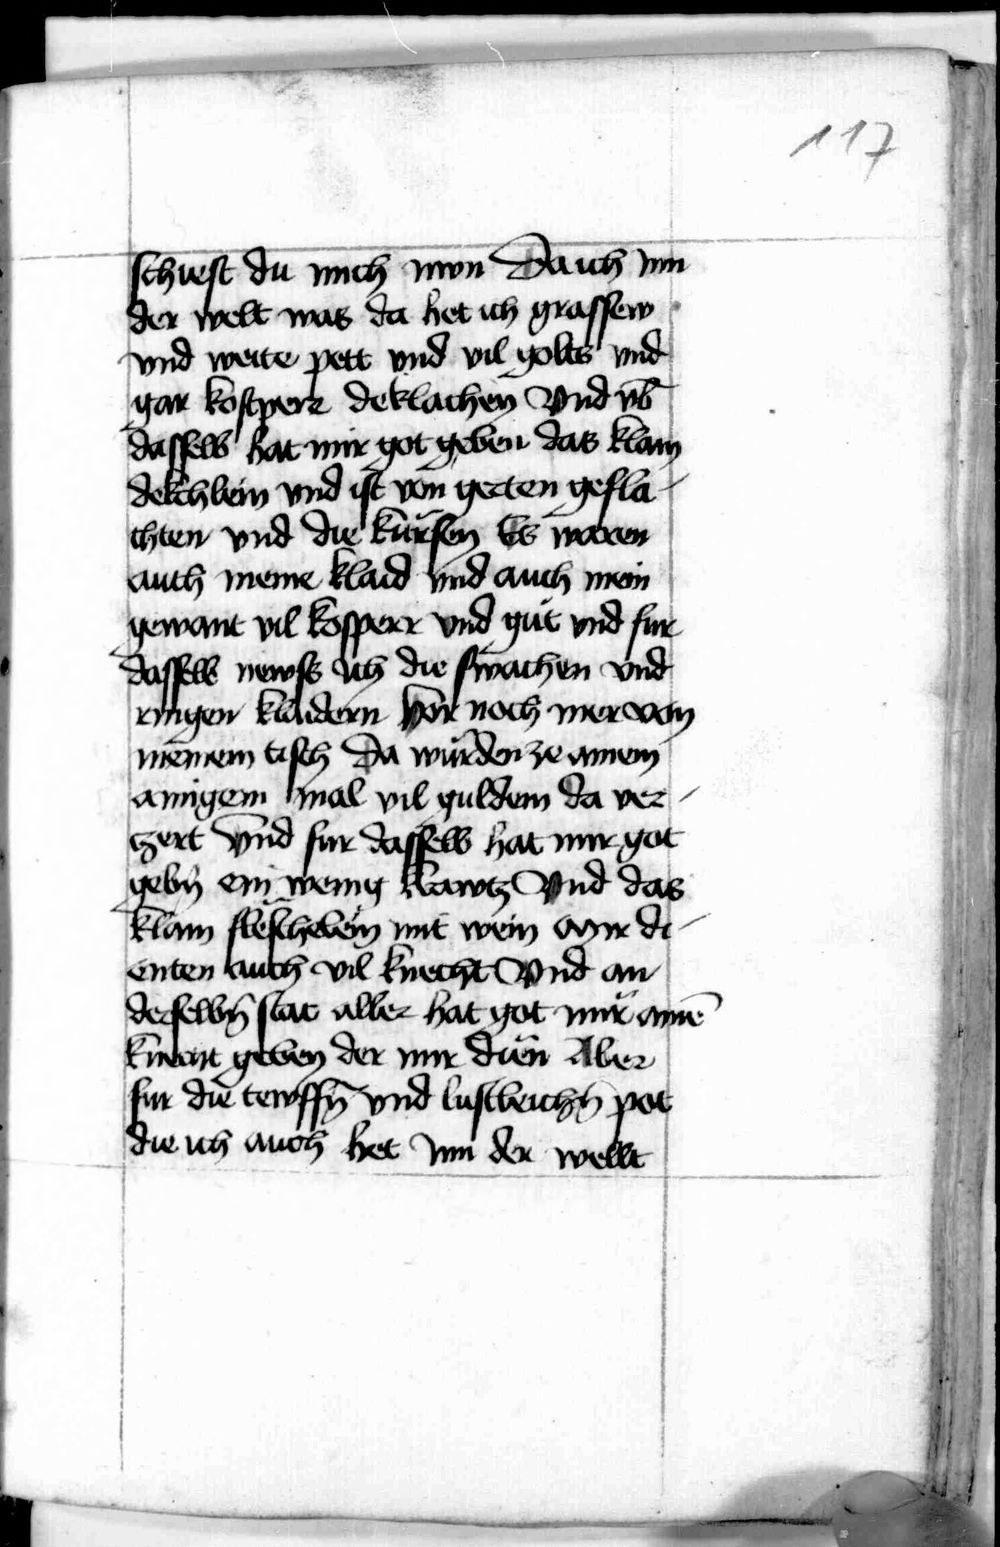 117
schiest du mich nwn Da ich inn
der welt was da het ich grassew
vnd weite pett vnd vil golts vnd
gar kostperr deklachen Vnd vb̄
dasselb hat mir got geben das klain
dekchlein vnd ist von gerten gefla-
chten vnd die kürsen Es waren
auch meine klaid vnd auch mein
gewant vil kosperr vnd güt vnd fur
dasselb newss ich die swachen vnd
ringen klaidern hör noch mer von
meinem tisch Da würden ze ainem
ainigem mal vil guldem da ver-
czert Vnd fur dasselb hat mir got
gebn̄ ein wenig krawtz Vnd das
klain flëschelën mit wein Mir di-
enten auch vil knecht Vnd an
derselbn̄ stat aller hat got mir ainē
knecht geben der mir dien Aber
fur die tewffn̄ vnd lustleichn̄ pat
die ich auch het inn der wellt